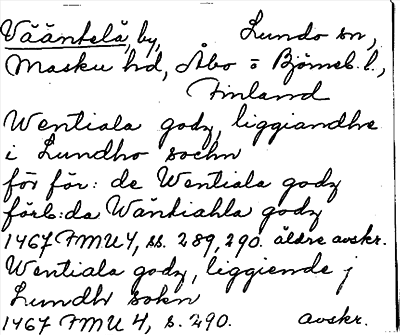 Vääntelä, by, Lundo sn,
Masku hd, Åbo = Björneb. l.,
Finland
Wentiala godz, liggiandhe
i Lundho sochn
för för: de Wentiala godz
förb: da Wäntiahla godz
1467 FMU 4, ss. 289, 290. äldre avskr.
Wentiala godz, liggiende j
Lundh sokn
1467 FMU 4, s. 290. avskr.